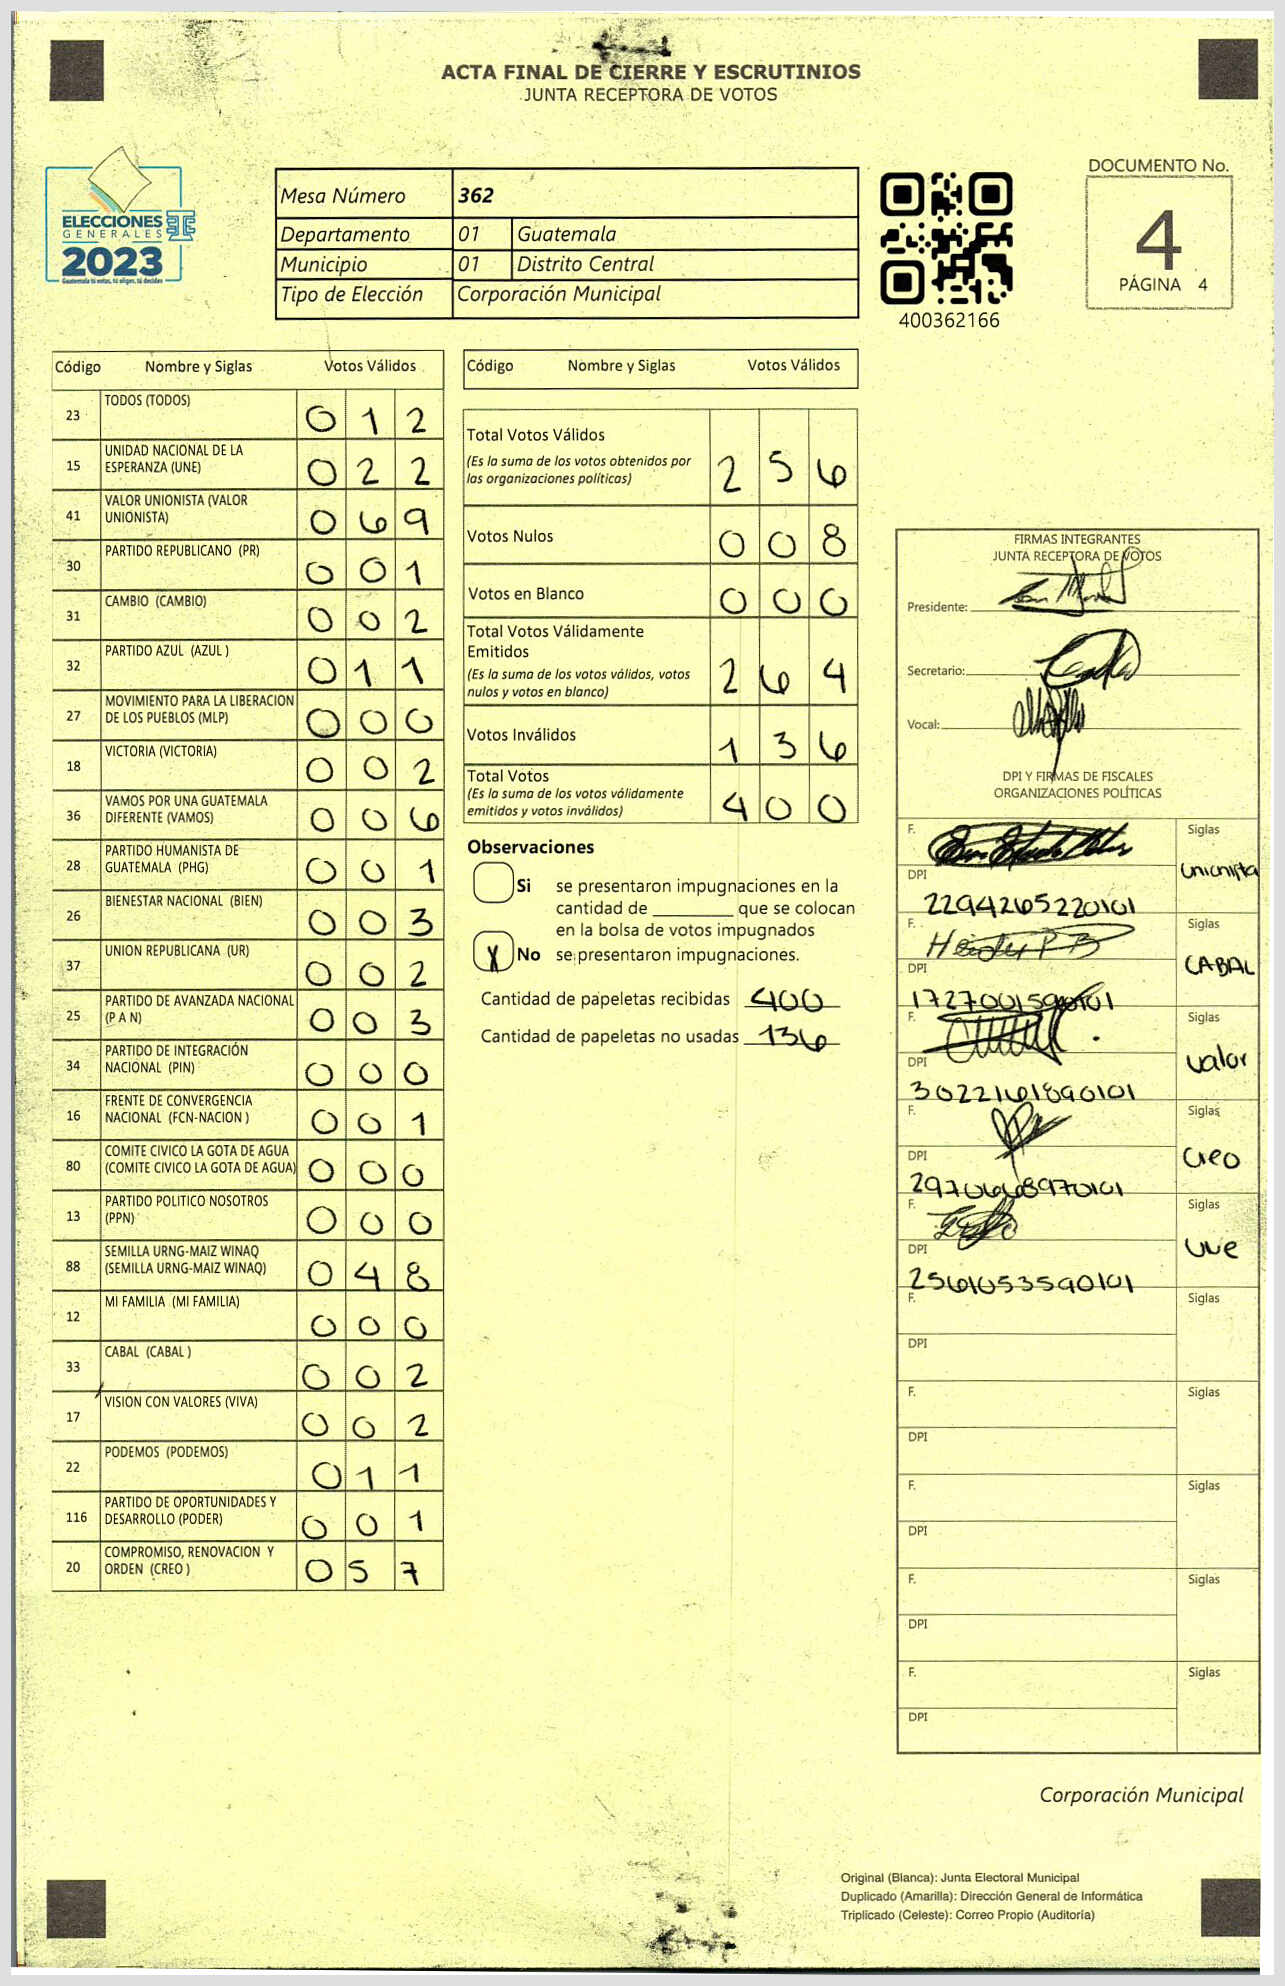 ACTA FINAL DE CIERRE Y ESCRUTINIOS
JUNTA RECEPTORA DE VOTOS
ELECCIONES
GENERALES
2023
Guatemala tú votas, tú eliges, tú decides
Mesa Número 362
Departamento 01 Guatemala
Municipio 01 Distrito Central
Tipo de Elección Corporación Municipal
400362166
DOCUMENTO No.
4
PÁGINA 4
Código Nombre y Siglas Votos Válidos
23 TODOS (TODOS) 0 1 2
15 UNIDAD NACIONAL DE LA ESPERANZA (UNE) 0 2 2
41 VALOR UNIONISTA (VALOR UNIONISTA) 0 6 9
30 PARTIDO REPUBLICANO (PR) 0 0 1
31 CAMBIO (CAMBIO) 0 0 2
32 PARTIDO AZUL (AZUL ) 0 1 1
27 MOVIMIENTO PARA LA LIBERACION DE LOS PUEBLOS (MLP) 0 0 0
18 VICTORIA (VICTORIA) 0 0 2
36 VAMOS POR UNA GUATEMALA DIFERENTE (VAMOS) 0 0 6
28 PARTIDO HUMANISTA DE GUATEMALA (PHG) 0 0 1
26 BIENESTAR NACIONAL (BIEN) 0 0 3
37 UNION REPUBLICANA (UR) 0 0 2
25 PARTIDO DE AVANZADA NACIONAL (P A N) 0 0 3
34 PARTIDO DE INTEGRACIÓN NACIONAL (PIN) 0 0 0
16 FRENTE DE CONVERGENCIA NACIONAL (FCN-NACION ) 0 0 1
80 COMITE CIVICO LA GOTA DE AGUA (COMITE CIVICO LA GOTA DE AGUA) 0 0 0
13 PARTIDO POLITICO NOSOTROS (PPN) 0 0 0
88 SEMILLA URNG-MAIZ WINAQ (SEMILLA URNG-MAIZ WINAQ) 0 4 8
12 MI FAMILIA (MI FAMILIA) 0 0 0
33 CABAL (CABAL ) 0 0 2
17 VISION CON VALORES (VIVA) 0 0 2
22 PODEMOS (PODEMOS) 0 1 1
116 PARTIDO DE OPORTUNIDADES Y DESARROLLO (PODER) 0 0 1
20 COMPROMISO, RENOVACION Y ORDEN (CREO ) 0 5 7
Código Nombre y Siglas Votos Válidos
Total Votos Válidos 2 5 6
(Es la suma de los votos obtenidos por
las organizaciones políticas)
Votos Nulos 0 0 8
Votos en Blanco 0 0 0
Total Votos Válidamente
Emitidos 2 6 4
(Es la suma de los votos válidos, votos
nulos y votos en blanco)
Votos Inválidos 1 3 6
Total Votos 4 0 0
(Es la suma de los votos válidamente
emitidos y votos inválidos)
Observaciones
Si se presentaron impugnaciones en la
cantidad de ________ que se colocan
en la bolsa de votos impugnados
X No se presentaron impugnaciones.
Cantidad de papeletas recibidas 400
Cantidad de papeletas no usadas 136
FIRMAS INTEGRANTES
JUNTA RECEPTORA DE VOTOS
Presidente:
Secretario:
Vocal:
DPI Y FIRMAS DE FISCALES
ORGANIZACIONES POLÍTICAS
F. Siglas
DPI Unionista
2294265220101
F. Siglas
DPI CABAL
1727001590101
F. Siglas
DPI Valor
3022161890101
F. Siglas
DPI Creo
2970668970101
F. Siglas
DPI Une
2561053590101
F. Siglas
DPI
F. Siglas
DPI
F. Siglas
DPI
F. Siglas
DPI
F. Siglas
DPI
Corporación Municipal
Original (Blanca): Junta Electoral Municipal
Duplicado (Amarilla): Dirección General de Informática
Triplicado (Celeste): Correo Propio (Auditoría)